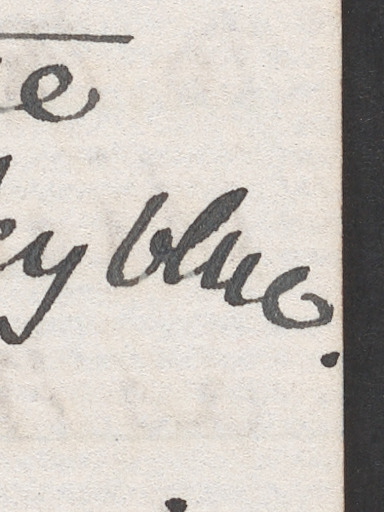 e
ky blue.